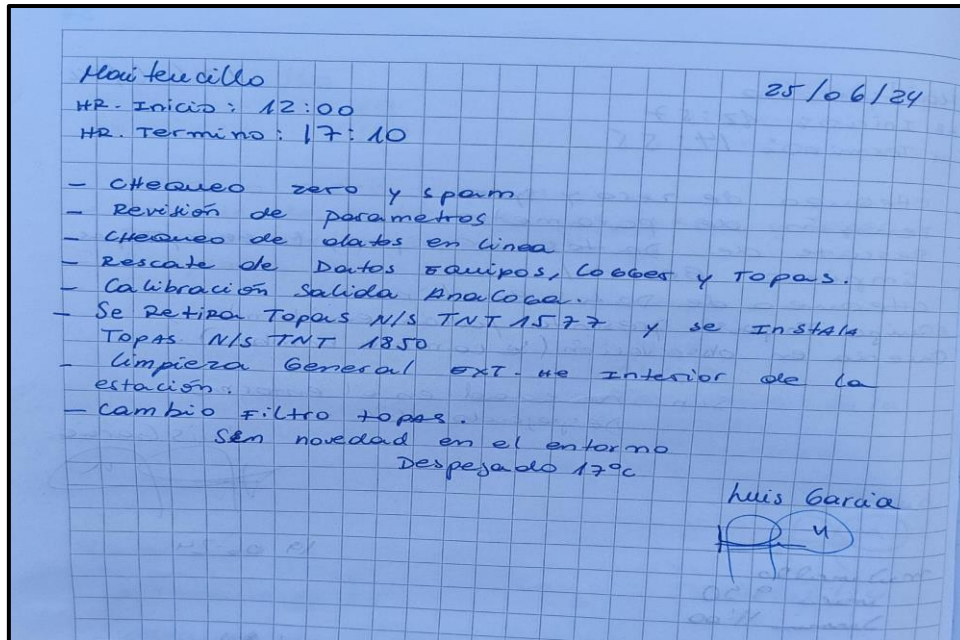 Maitencillo
25/06/24
HR. Inicio: 12:00
HR. Termino: 17:10
- CHequeo zero y spam
- Revisión de parametros
- CHequeo de datos en linea
- Rescate de Datos Equipos, Logger y Topas.
- Calibración Salida Analoga.
- Se Retira Topas N/S TNT 1577 y se Instala
Topas N/S TNT 1850
- Limpieza General EXT. He Interior de la
estación.
- Cambio Filtro topas.
Sin novedad en el entorno
Despejado 17°c
Luis Garcia